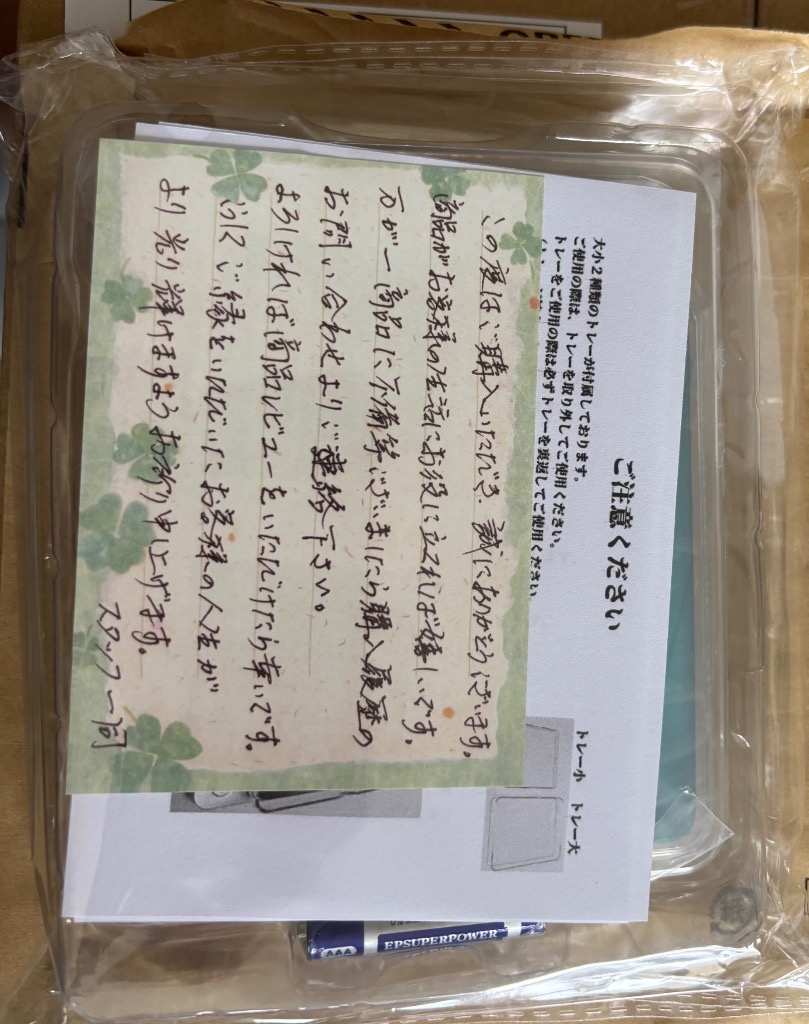 ご注意ください
大小2種類のトレーが付属しております。
ご使用の際は、トレーを取り外してご使用ください。
トレーをご使用の際は必ずトレーを裏返してご使用ください
トレー小 トレー大
この度はご購入いただき、誠にありがとうございます。
商品がお客様の生活にお役に立てれば嬉しいです。
万が一商品に不備等ございましたら購入履歴の
お問い合わせよりご連絡下さい。
よろしければ商品レビューをいただけたら幸いです。
ご縁をいただいたお客様の人生が
より光り輝けますようお祈り申し上げます。
スタッフ一同
AAA
EPSUPERPOWER